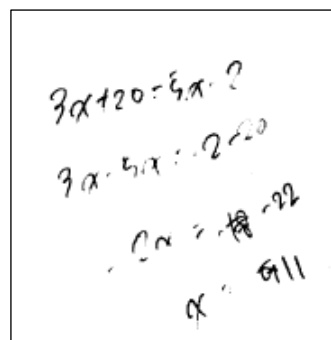 3x+20=5x-2
3x-5x=-2-20
-2x=-22
x=11